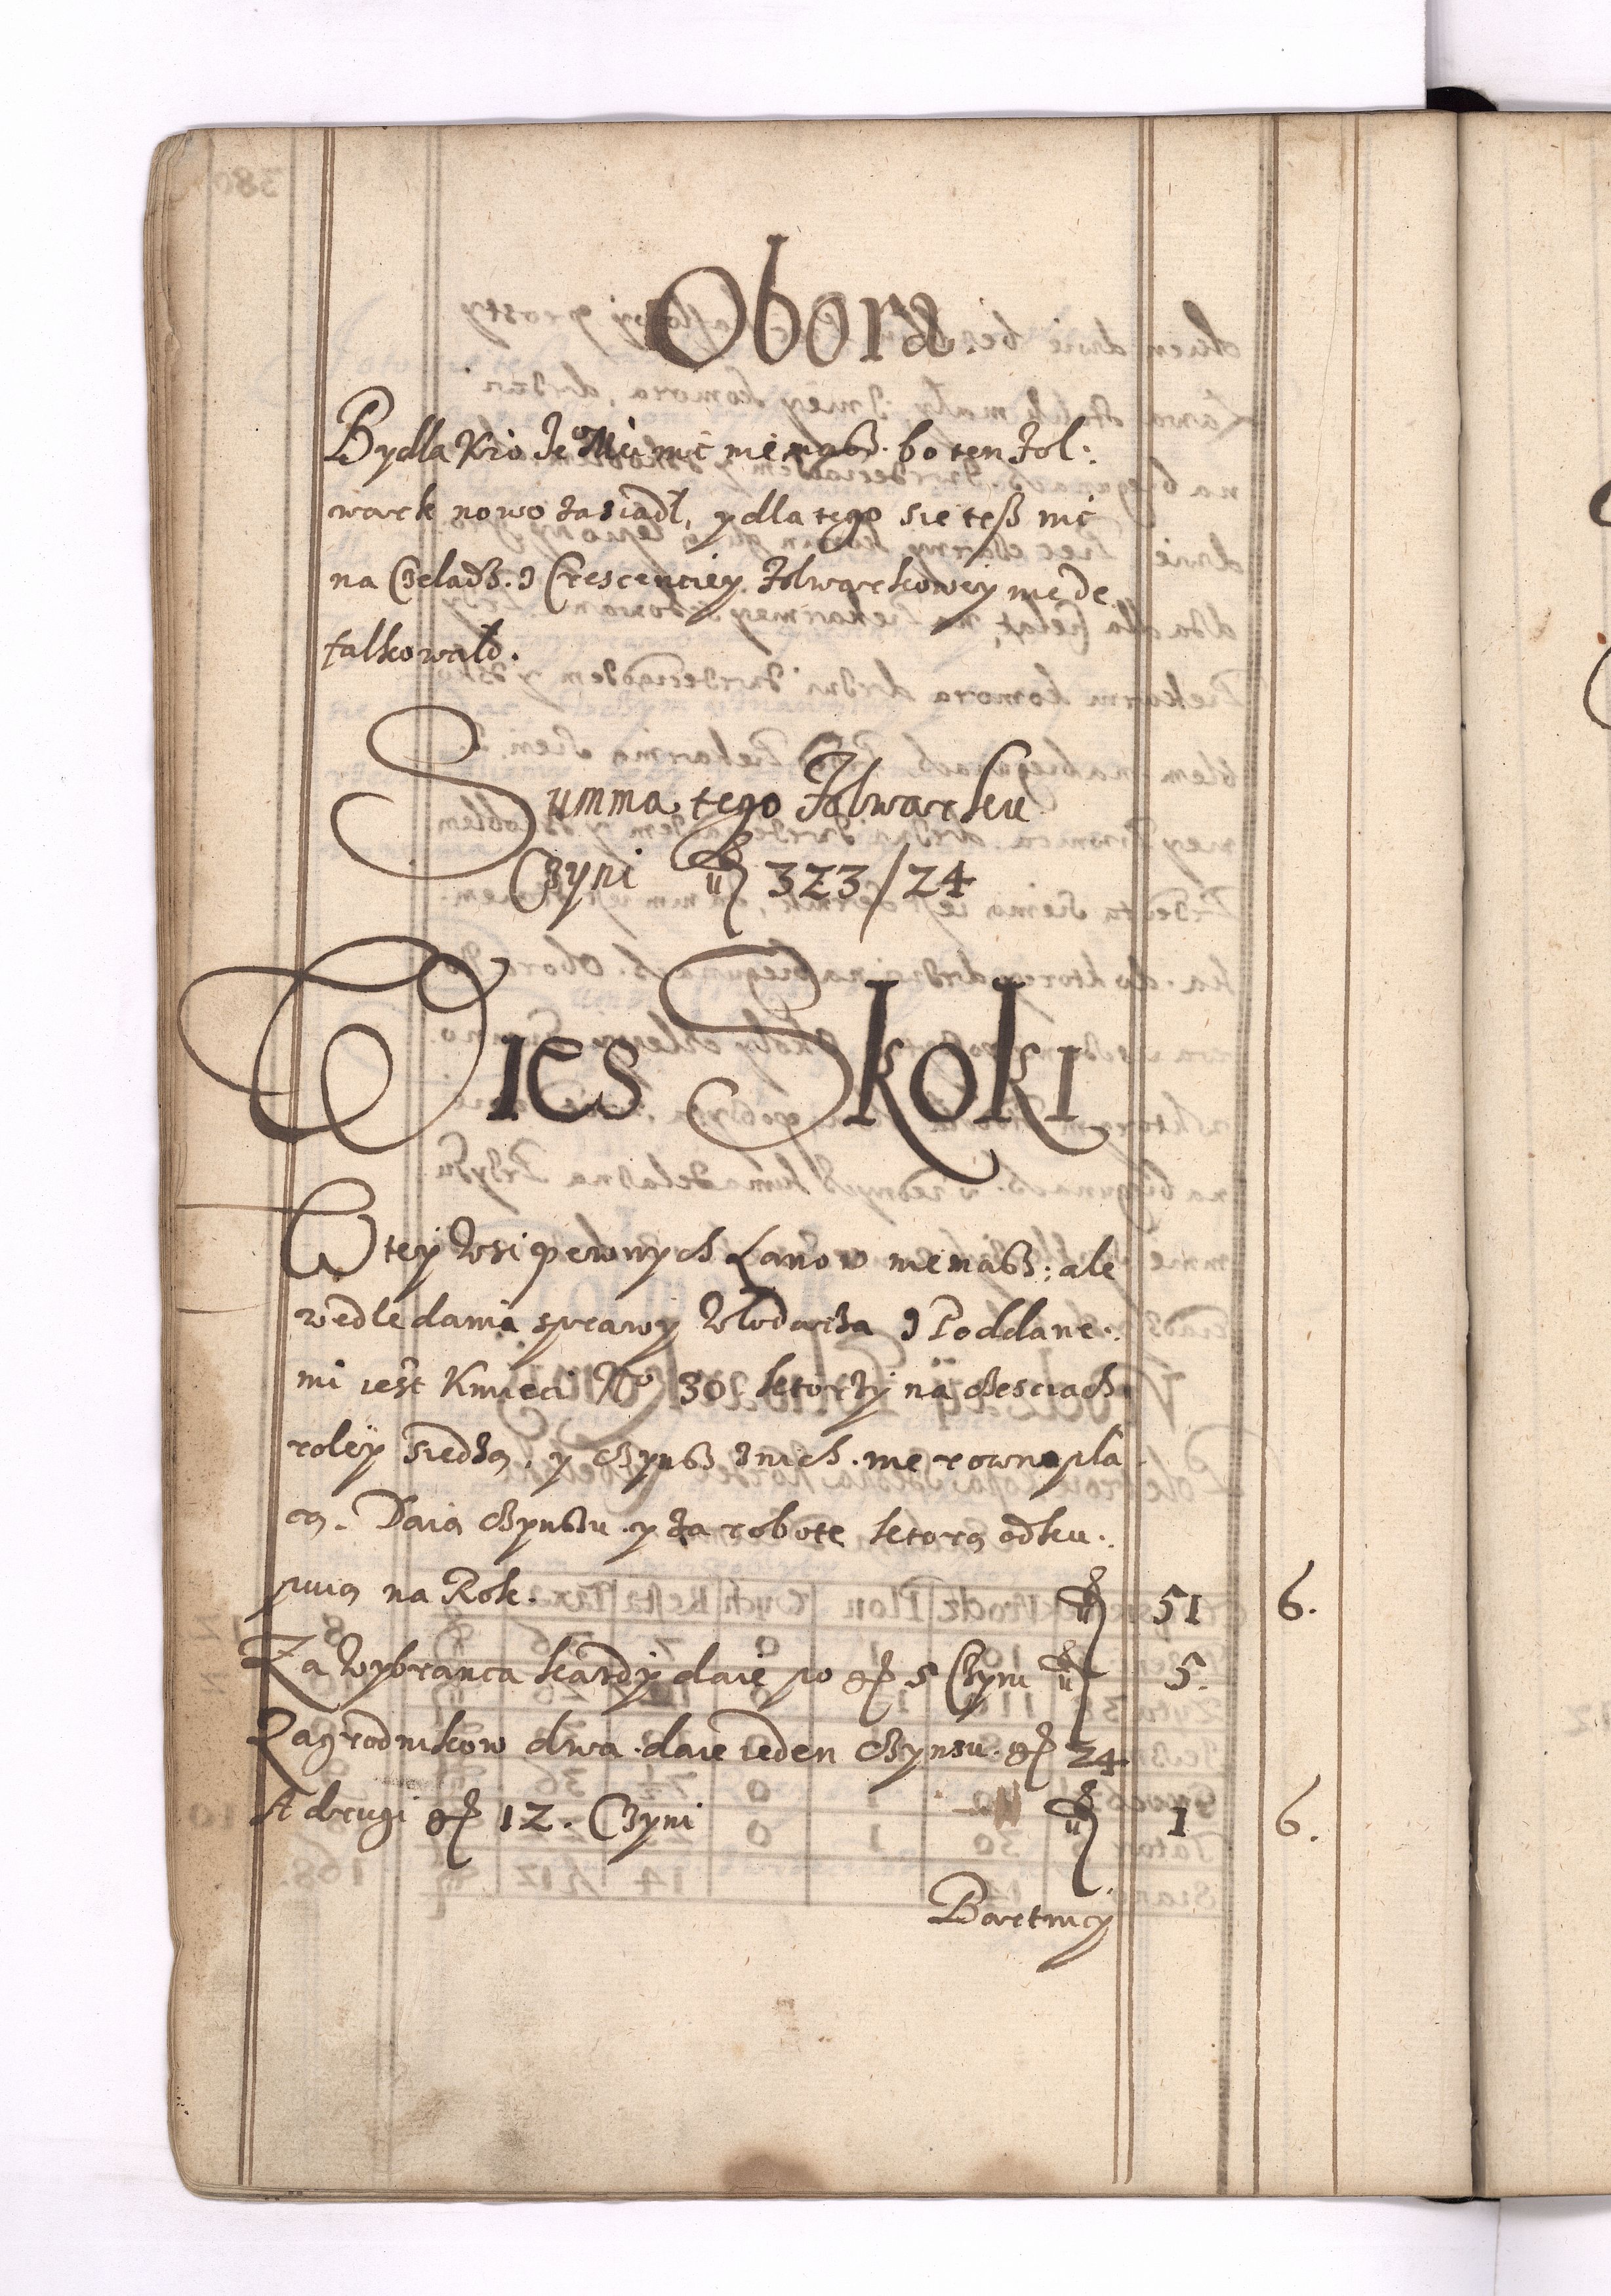 Obora.
Bydla Kro Je Mci nic niemasz. bo ten Fol:
wark nowo zasiadł, y dla tego sie tesz nic
na Czeladz. z Crescenciey Folwarkowey nie de
falkowało.
Summa tego Folwarku
Czyni fl 323/24
Wies Skoki
W tey Wsi pewnych Łanow niemasz; ale
wedle dania sprawy Włodarza z Poddane:
mi iest Kmieci No 30 ktorzy na czesciach
roley siedzą, y czynsz z nich nie rowno płá
cą. Daią czynszu y za robote ktorą odku:
puią na Rok. fl 51 6.
Za Wybranca kazdy daie po gr 5 Czyni fl 5.
Zagrodnikow dwa daie ieden czynsu gr 24
A drugi gr 12. Czyni fl 1 6.
Bartnicy